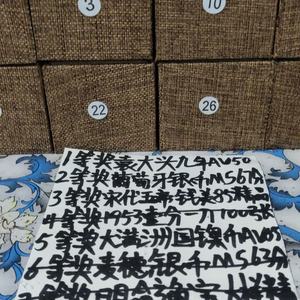 3
10
22
26
1等奖袁大头九年AU50
2等奖葡萄牙银币MS67分
3等奖宋代五帝钱美85精
4等奖1953壹分一刀100张
5等奖大满洲国镍币AU05
6等奖麦穗银币MS62分
7等奖